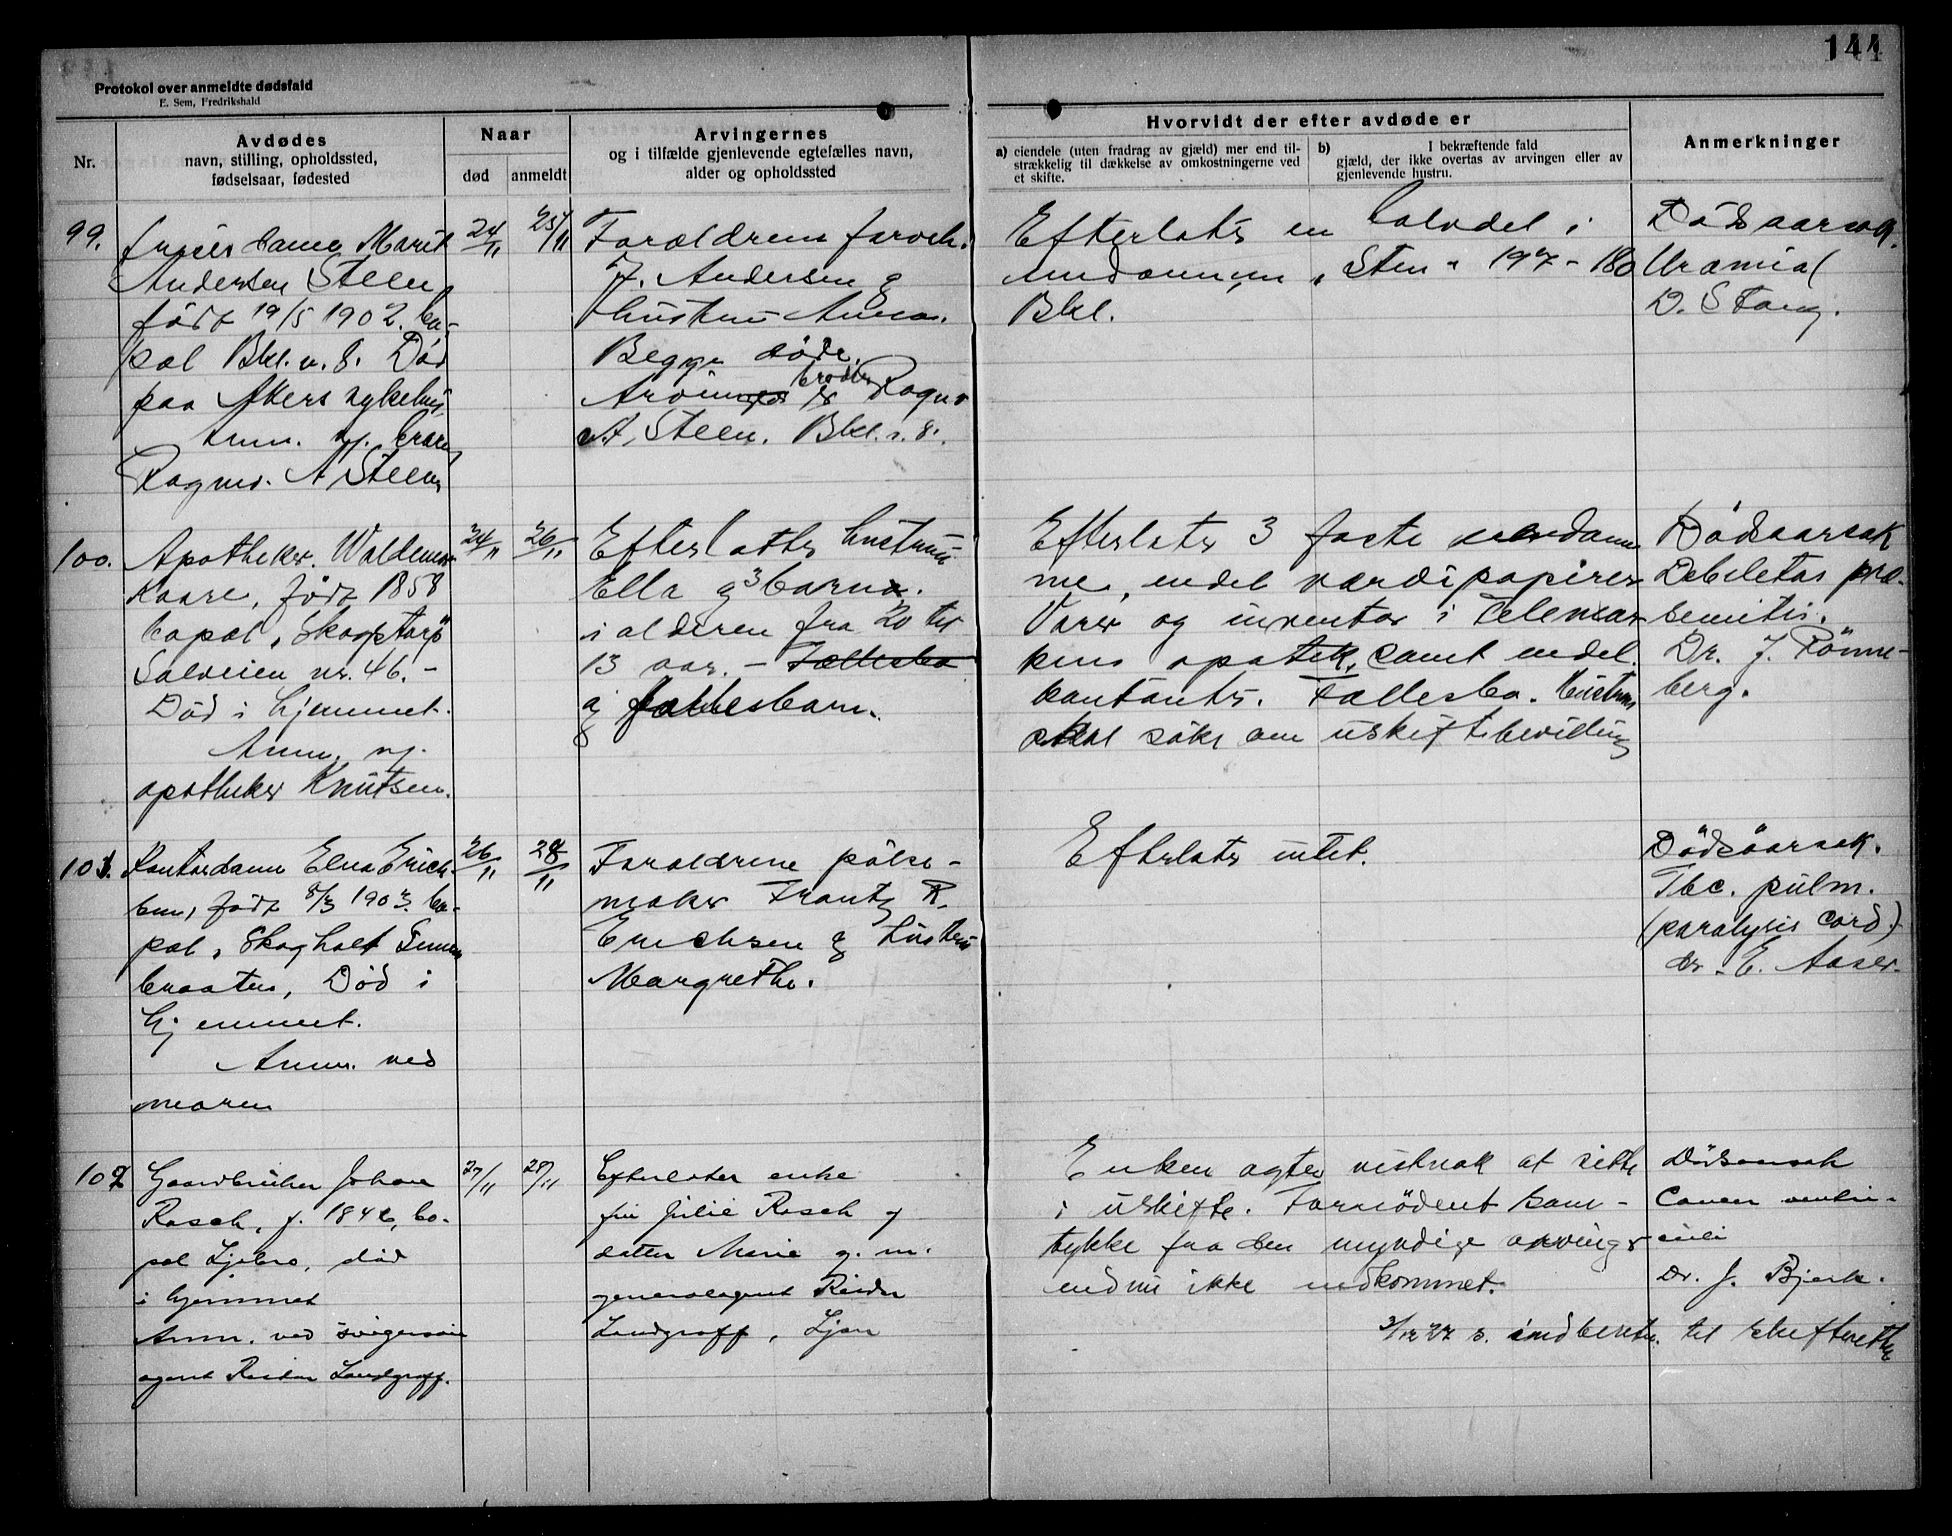 144
Protokol over anmeldte dødsfald
E. Sem, Fredrikshald
Nr.
Avdødes
navn, stilling, opholdssted,
fødselsaar, fødested
Naar
død
anmeldt
Arvingernes
og i tilfælde gjenlevende egtefælles navn,
alder og opholdssted
Hvorvidt der efter avdøde er
a) eiendele (uten fradrag av gjæld) mer end til-
strækkelig til dækkelse av omkostningerne ved
et skifte.
b) I bekræftende fald
gjæld, der ikke overtas av arvingen eller av
gjenlevende hustru.
Anmerkninger
99.
Marit
Andersen Steen
født 19/5 1902. bo-
pæl Bkl. v. 8. Død
paa Akers sykehus
Anm. v/ bror
Ragnv. A Steen
24/11
25/11
Forældrene
J. Andersen og
hustru Anna.
Begge døde.
broder
Arving er Ragnv
A. Steen. Bkl. v. 8.
Efterlater en halvdel i
eiendommen "Sten" 197-180
Bkl.
Dødsaarsak.
Uræmia
D. Stang.
100.
Apotheker Waldemar
Kaare, født 1858
bopæl "Skogstorp"
Solveien nr. 46. -
Død i hjemmet.
Anm. v/
apotheker Knutsen.
24/11
26/11
Efterlatter hustru
Ella og 3 barn.
i alderen fra 20 til
13 aar. - Fællesbo
og fællesbarn.
Efterlater 3 faste eiendomme
me, endel værdipapirer
Varer og inventar i Telemar
kens apotek, samt endel
kontanter. Fællesbo. Hustrun
skal søke om uskiftebevilling
Dødsaarsak
Debiletas præ-
semitis.
Dr. J. Rønne-
berg.
101.
Kontordame Elna Erich-
sen, født 8/3 1903. bo-
pæl "Skogholt"
braaten, Død i
hjemmet.
Anm. ved
moren
26/11
28/11
Forældrene pølse-
maker Frantz R.
Erichsen og hustru
Margrethe.
Efterlater intet.
Dødsaarsak.
Tbc. pulm.
(paralysis cord.)
dr. E. Aaser.
102
Gaardbruker Johan
Rasch, f. 1842, bo-
pæl Ljabro, død
i hjemmet
Anm. ved svigersøn
agent Reidar Landgraff.
27/11
28/11
Efterlater enke
fru Julie Rasch og
datter Marie g. m.
generalagent Reidar
Landgraff, Ljan
Enken agter vistnok at sitte
i uskifte. Fornødent sam-
tykke fra den myndige arving
endnu ikke indkommet.
indberetn. til skifteretten
Dødsaarsak
Cancer ventri-
culi
Dr. J. Bjerk.